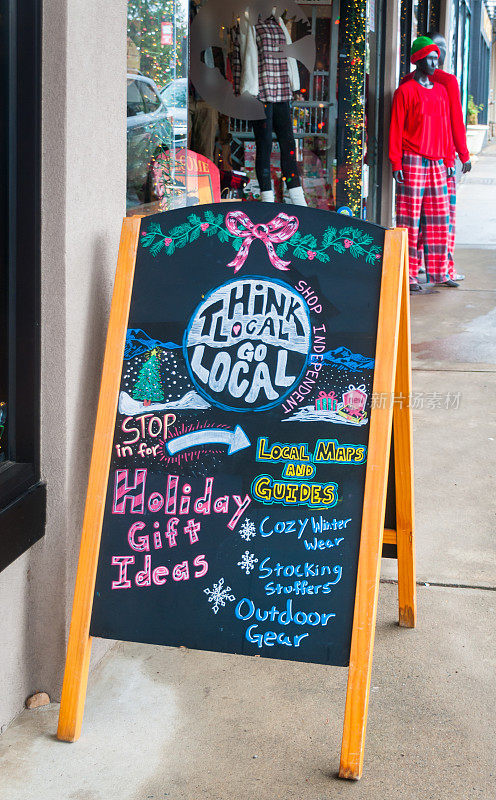 THINK
LOCAL
GO
LOCAL
SHOP INDEPENDENT
STOP
in for
LOCAL MAPS
AND
GUIDES
Holiday
Gift
Ideas
COZY WINTER
WEAR
STOCKING
STUFFERS
OUTDOOR
GEAR